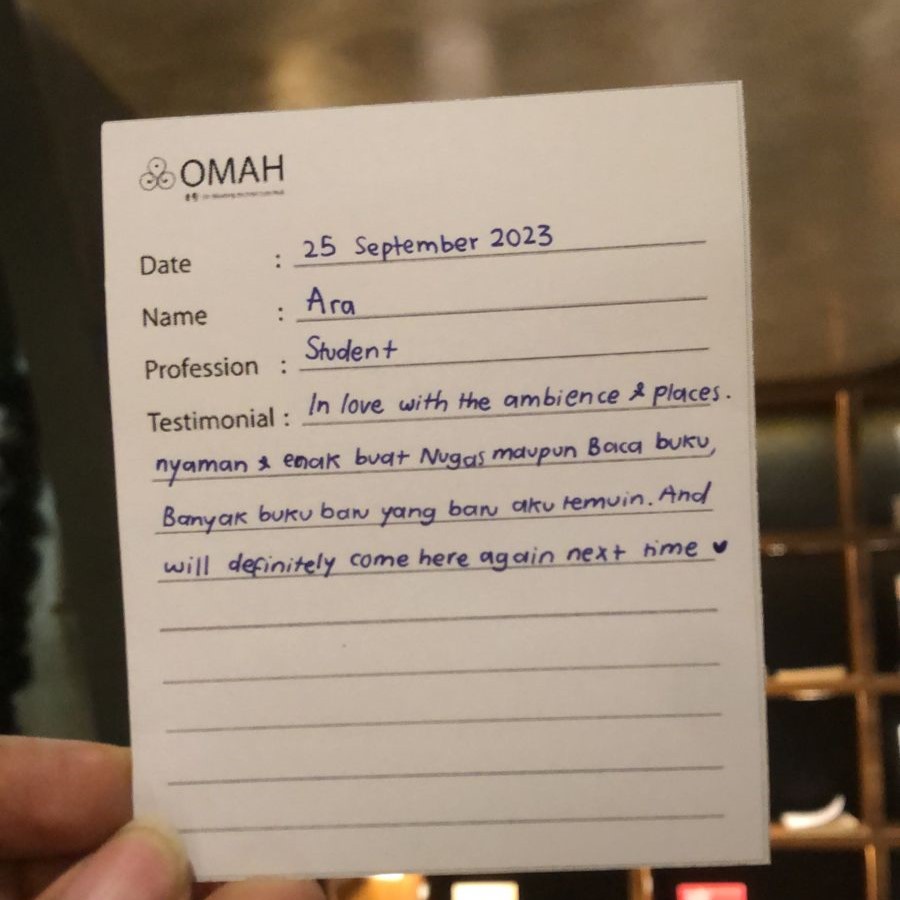 OMAH
Date : 25 September 2023
Name : Ara
Profession : Student
Testimonial : In love with the ambience & places.
nyaman & enak buat Nugas maupun Baca buku,
Banyak buku baru yang baru aku temuin. And
will definitely come here again next time ♥